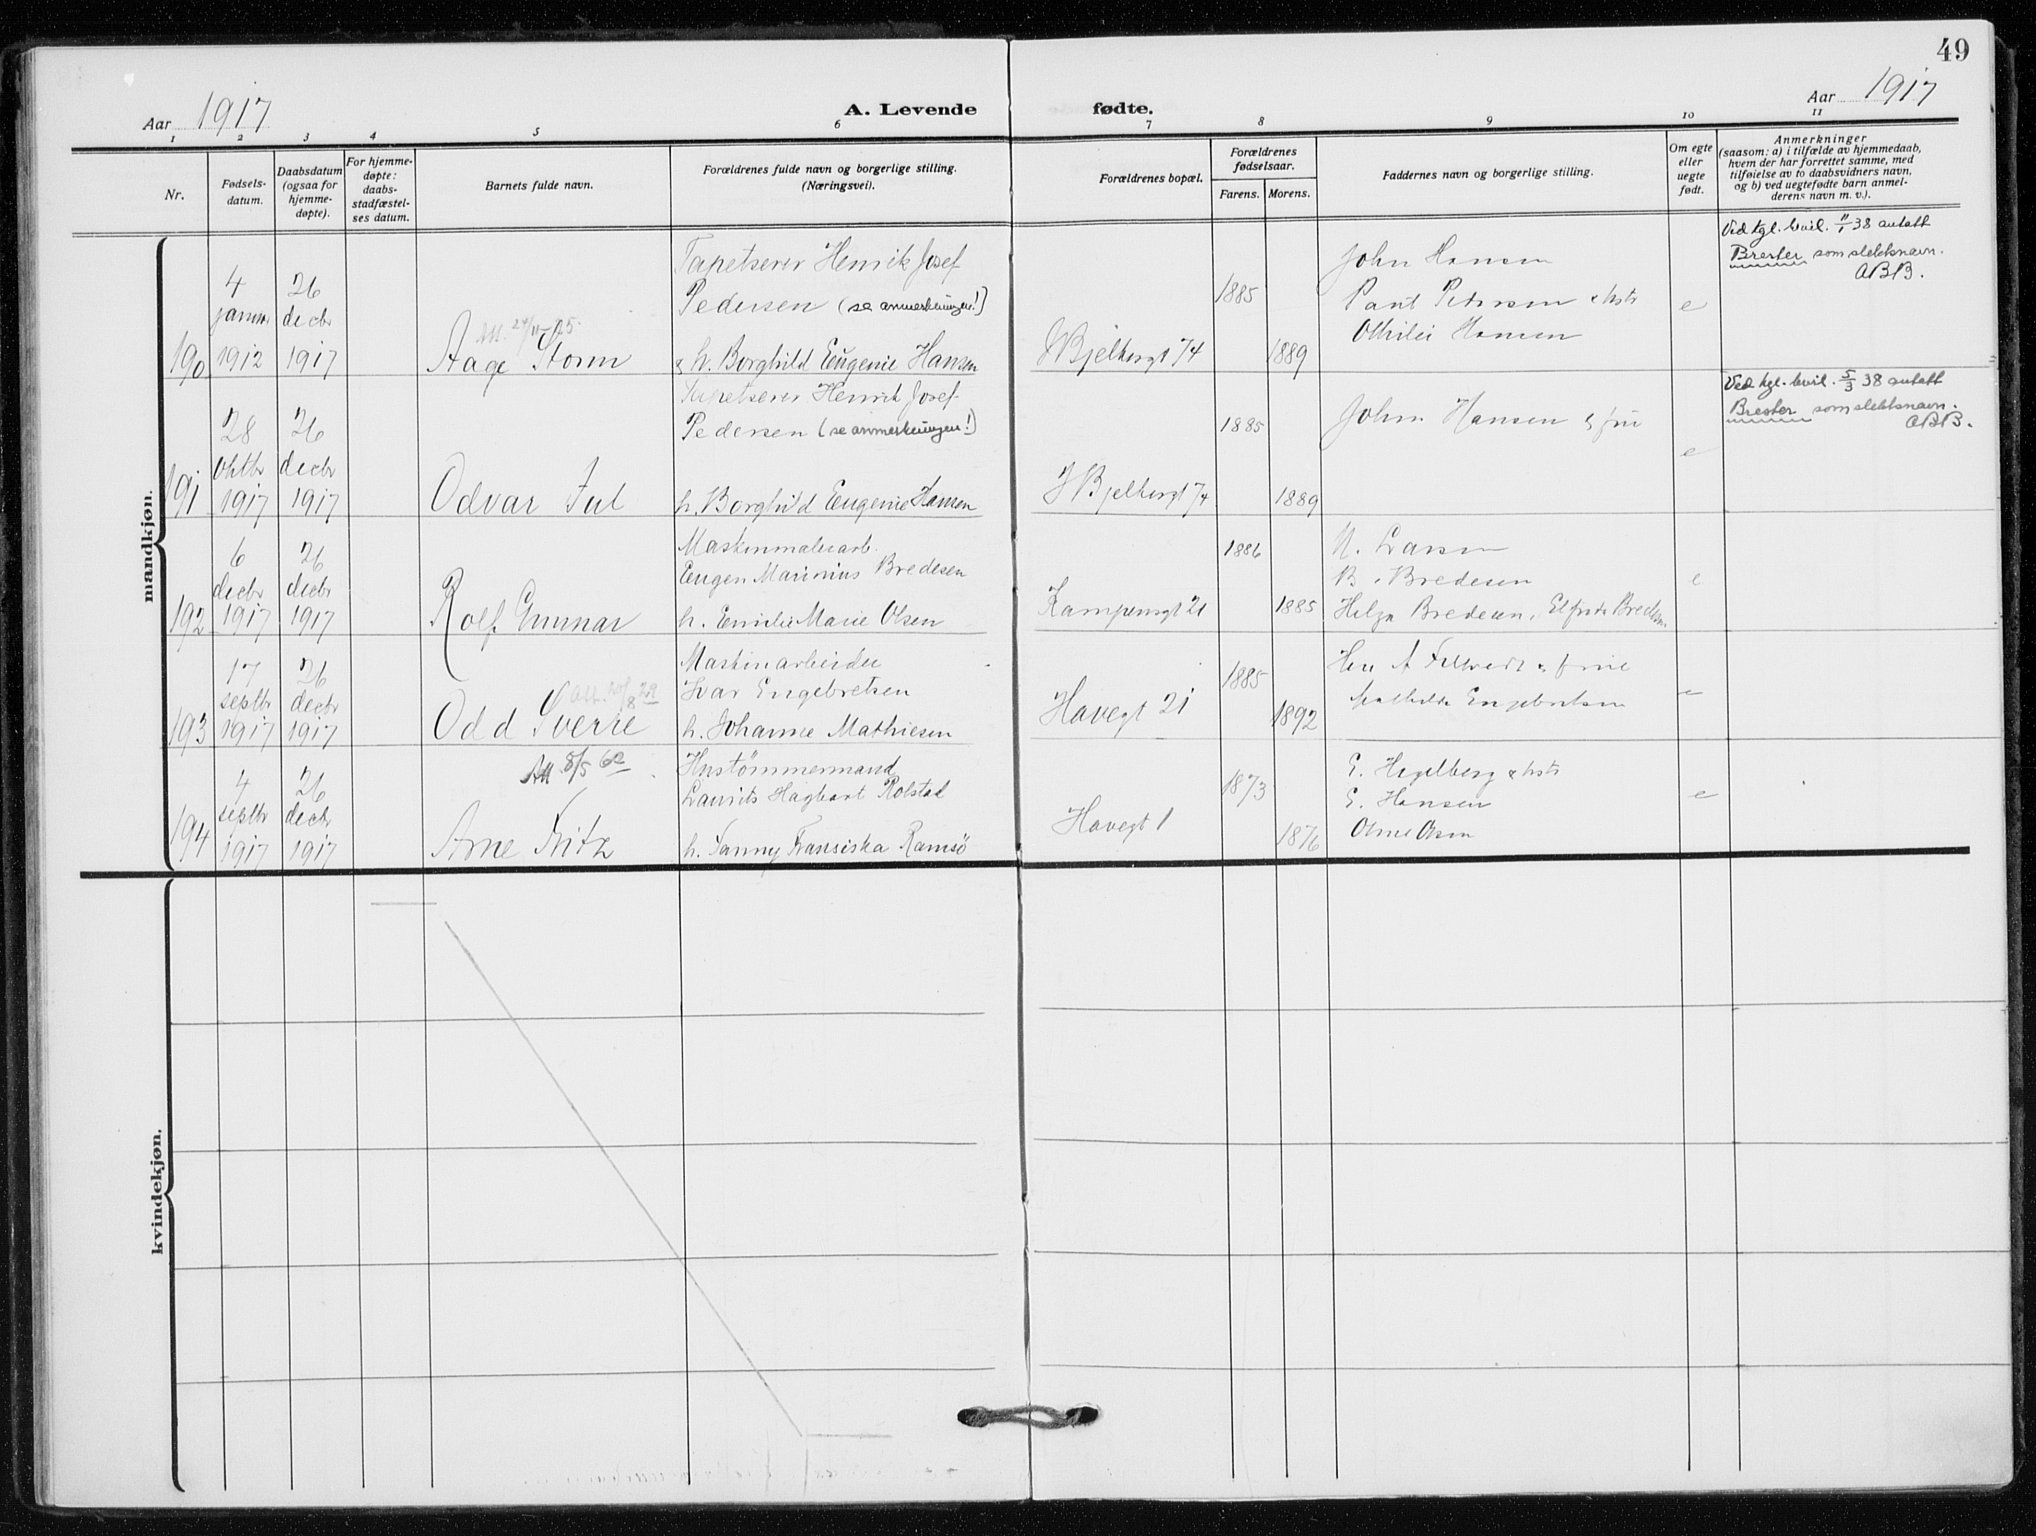 49
Aar 1917
A. Levende fødte.
Aar 1917
1 2 3 4 5 6 7 8 9 10 11
Nr.
Fødsels-
datum.
Daabsdatum
(ogsaa for
hjemme-
døpte).
For hjemme-
døpte:
daabs-
stadfæstel-
ses datum.
Barnets fulde navn.
Forældrenes fulde navn og borgerlige stilling.
(Næringsvei).
Forældrenes bopæl.
Forældrenes
fødselsaar.
Farens. Morens.
Faddernes navn og borgerlige stilling.
Om egte
eller
uegte
født.
Anmerkninger
(saasom: a) i tilfælde av hjemmedaab,
hvem der har forrettet samme, med
tilføielse av to daabsvidners navn,
og b) ved uegtefødte barn anmel-
derens navn m. v.).
mandkjøn.
190
4
januar
1912
26
decbr
1917
Att. 24/11-25.
Aage Storm
Tapetserer Henrik Josef
Pedersen (se anmerkningen!)
& h. Borghild Eugenie Hansen
HBjelkesgt 74
1885
1889
John Hansen
Paul Pedersen & hstr
Othilie Hansen
e
Ved kgl. bevil. 11/1 38 antatt
Brester som slektsnavn.
ABB.
191
28
oktbr
1917
26
decbr
1917
Odvar Jul
Tapetserer Henrik Josef
Pedersen (se anmerkningen!)
h. Borghild Eugenie Hansen
JBjelkesgt 74
1885
1889
John Hansen & fru
e
Ved kgl. bevil. 5/3 38 antatt
Brester som slektsnavn.
ABB.
192
6
decbr
1917
26
decbr
1917
Rolf Gunnar
Maskinmalerarb.
Eugen Marinius Bredesen
h. Emilie Marie Olsen
Kampensgt 21
1886
1885
N. Larsen
B. Bredesen
Helga Bredesen, Elfrida Bredesen
e
193
17
septbr
1917
26
decbr
1917
Att. 20/8 29
Odd Sverre
Maskinarbeider
Ivar Engebretsen
h. Johanne Mathiesen
Havegt 21
1885
1892
Herr A & frue
Mathilde Engebretsen
e
194
4
septbr
1917
26
decbr
1917
Att 8/5 62
Arne Fritz
Hustømmermand
Laurits Hagbart Rolstad
h. Fanny Fransiska Ramsö
Havegt 1
1873
1876
E. Hegelberg & hstr
E. Hansen
Olme Olsen
e
kvindekjøn.